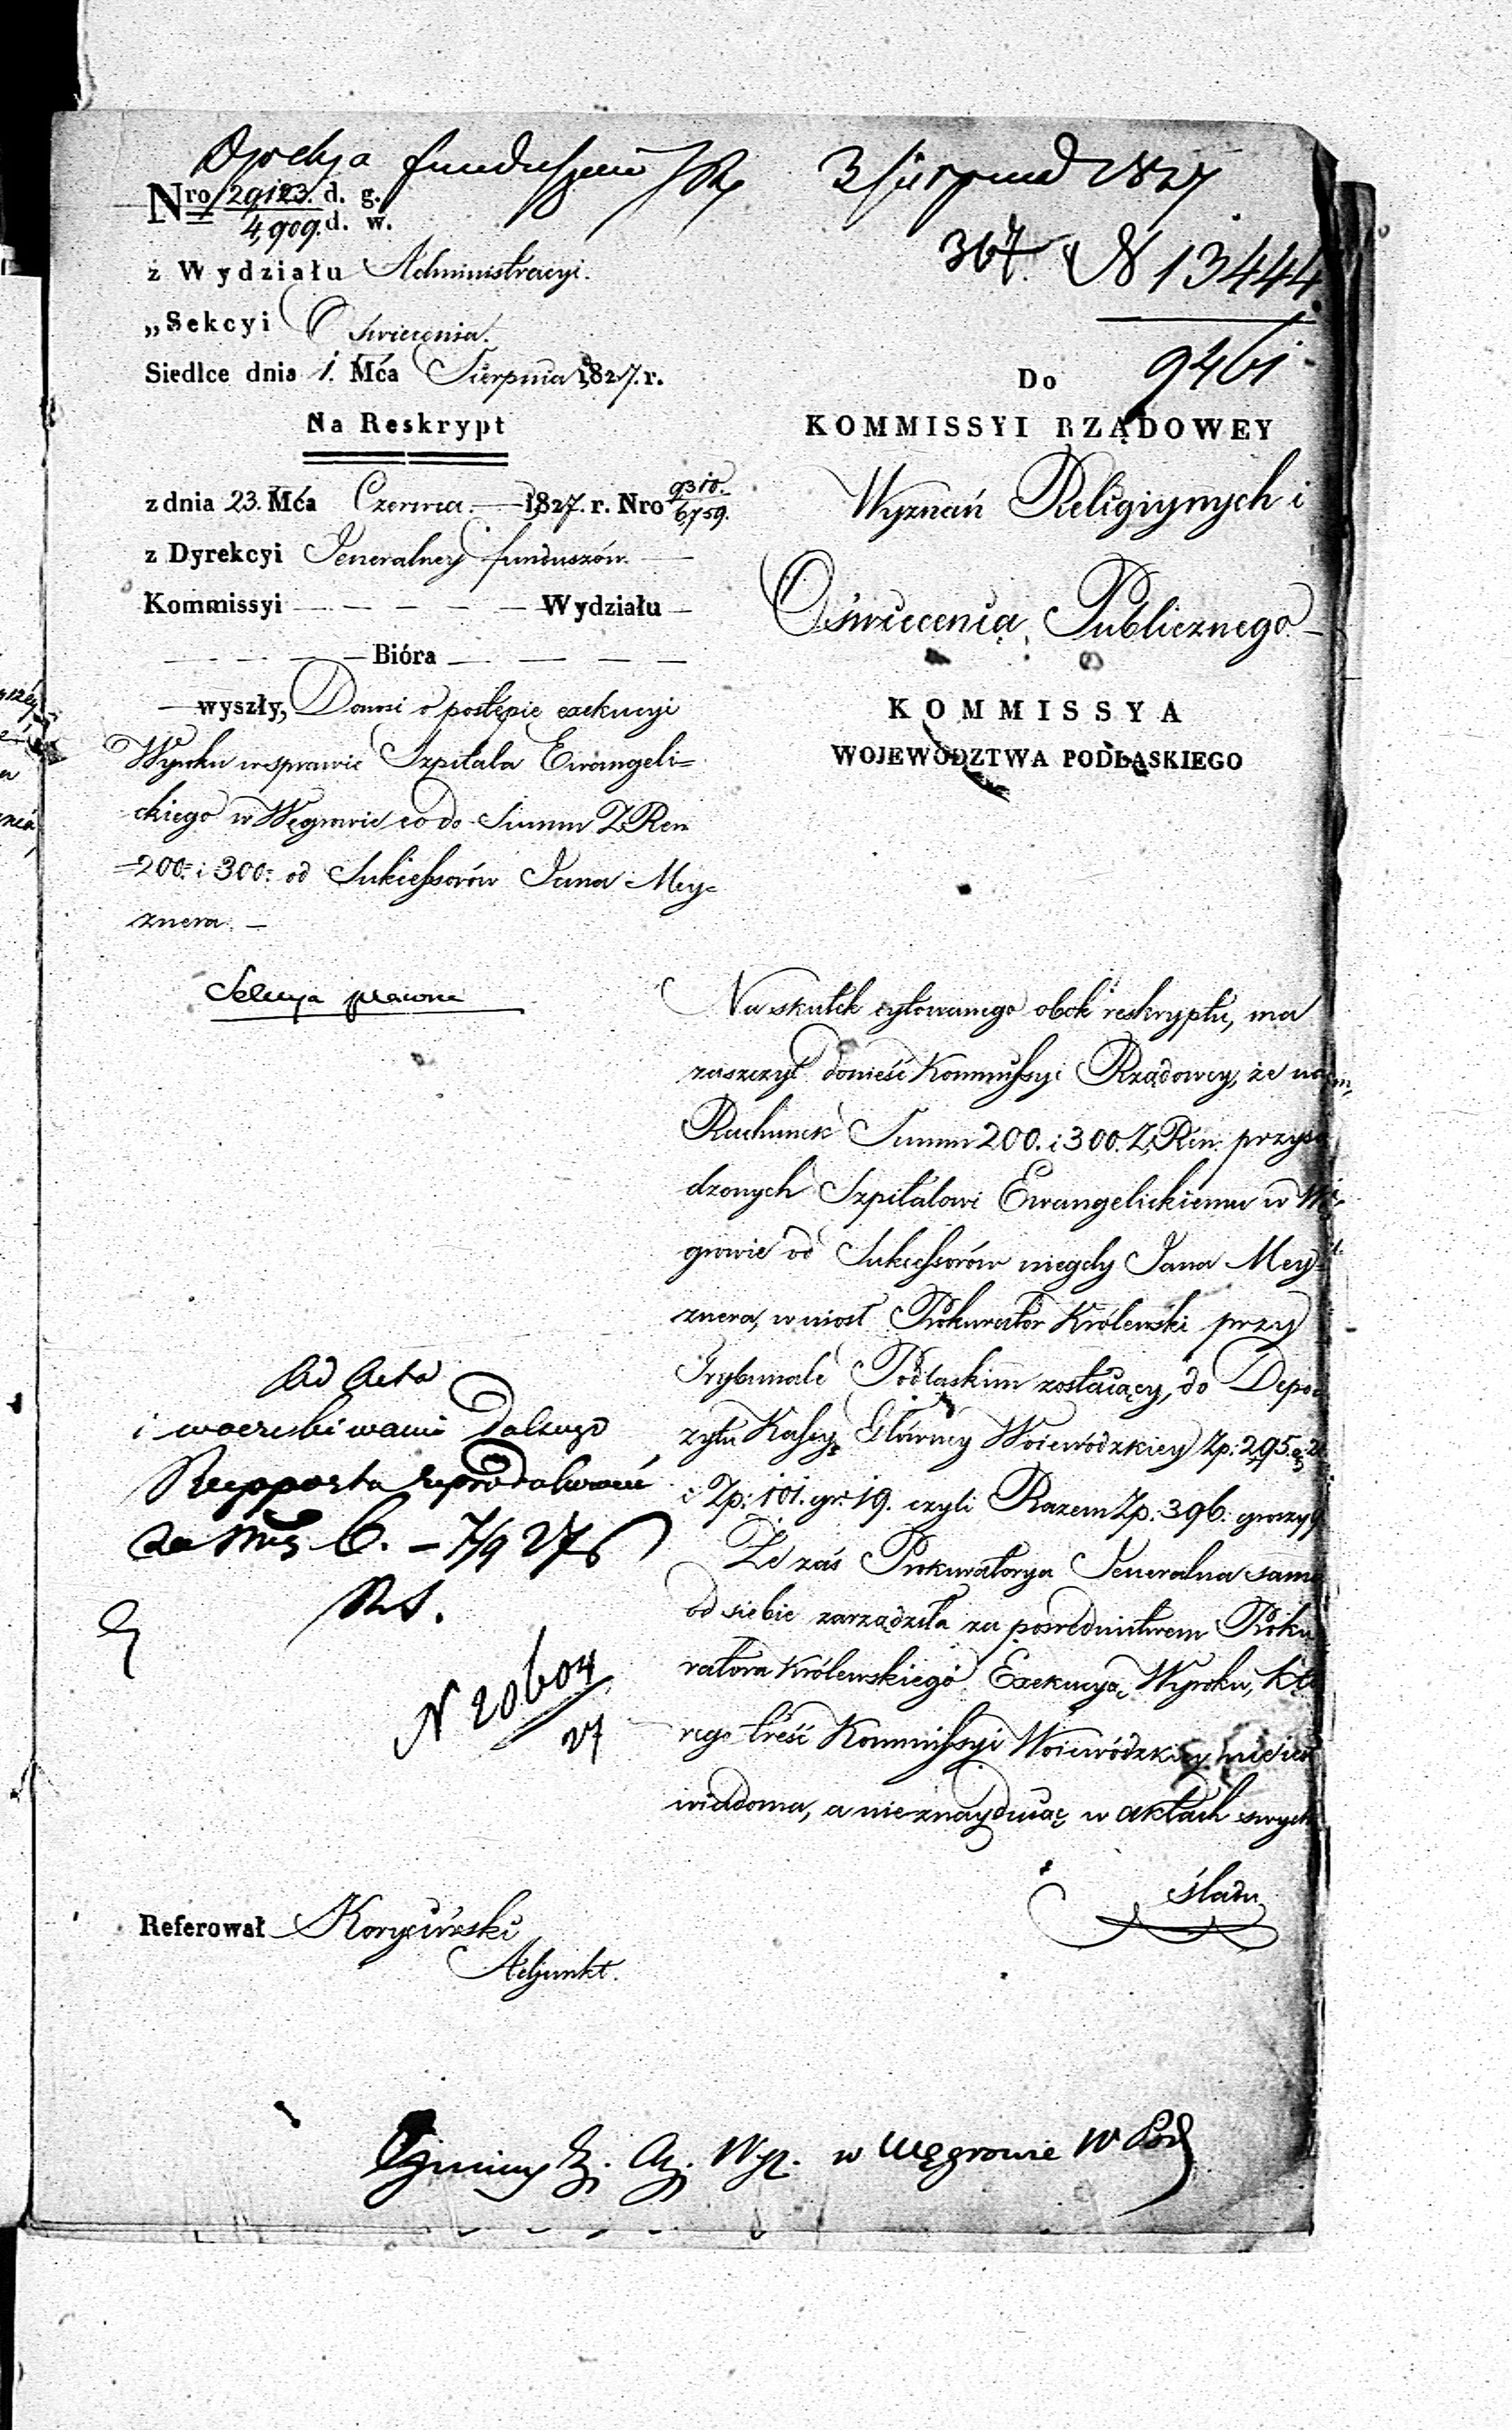 3 Sierpnia 1827
Nro 29123. d. g.
4,909. d. w.
367. N 13444
9461
z Wydziału Administracyi.
„Sekcyi Oswiecenia.
Siedlce dnia 1. Mća Sierpnia 1827. r.
Na Reskrypt
z dnia 23. Mća Czerwca. — 1827. r. Nro 9310.
6759.
z Dyrekcyi Jeneralney funduszów. —
Kommissyi — — — — — Wydziału —
— — — — Bióra — — — — —
— wyszły, Donosi o postępie exekucyi
Wyroku w sprawie Szpitala Ewangeli=
ckiego w Węgrowie co do Summ Z. Ren
=200= i 300: od Sukcessorów Jana Mey=
znera. —
Sekcya prawna
Do
KOMMISSYI RZĄDOWEY
Wyznań Religiynych i
Oświecenia Publicznego —
KOMMISSYA
WOJEWÓDZTWA PODLASKIEGO
Na skutek cytowanego obok reskryptu, ma
zaszczyt donieść Kommissyi Rządowey, że na
Rachunek Summ 200. i 300. Z. Ren. przysą
dzonych Szpitalowi Ewangelickiemu w Wę
growie od Sukcessorów niegdy Jana Mey=
znera, wniosł Prokurator Królewski przy
Trybunale Podlaskim zostaiący, do Depo
zytu Kassy Głównéy Woiewódzkiey Zp: 295. g.
i Zp: 101. gr: 19. czyli Razem Zp: 396. groszy 9
Że zaś Prokuratorya Jeneralna sama
od siebie zarządziła za pośrednictwem Proku
ratora Królewskiego Exekucyą Wyroku, któ
rego treść Kommissyi Woiewódzkiey nie iest
wiadoma, a nie znayduiąc w aktach swych
śladu
Ad Acta
i w oczekiwaniu dalszego
Rapportu
N 20604
27
Referował
Adjunkt.
Gminy Ew. Aug. Wyz. w Węgrowie W Pod